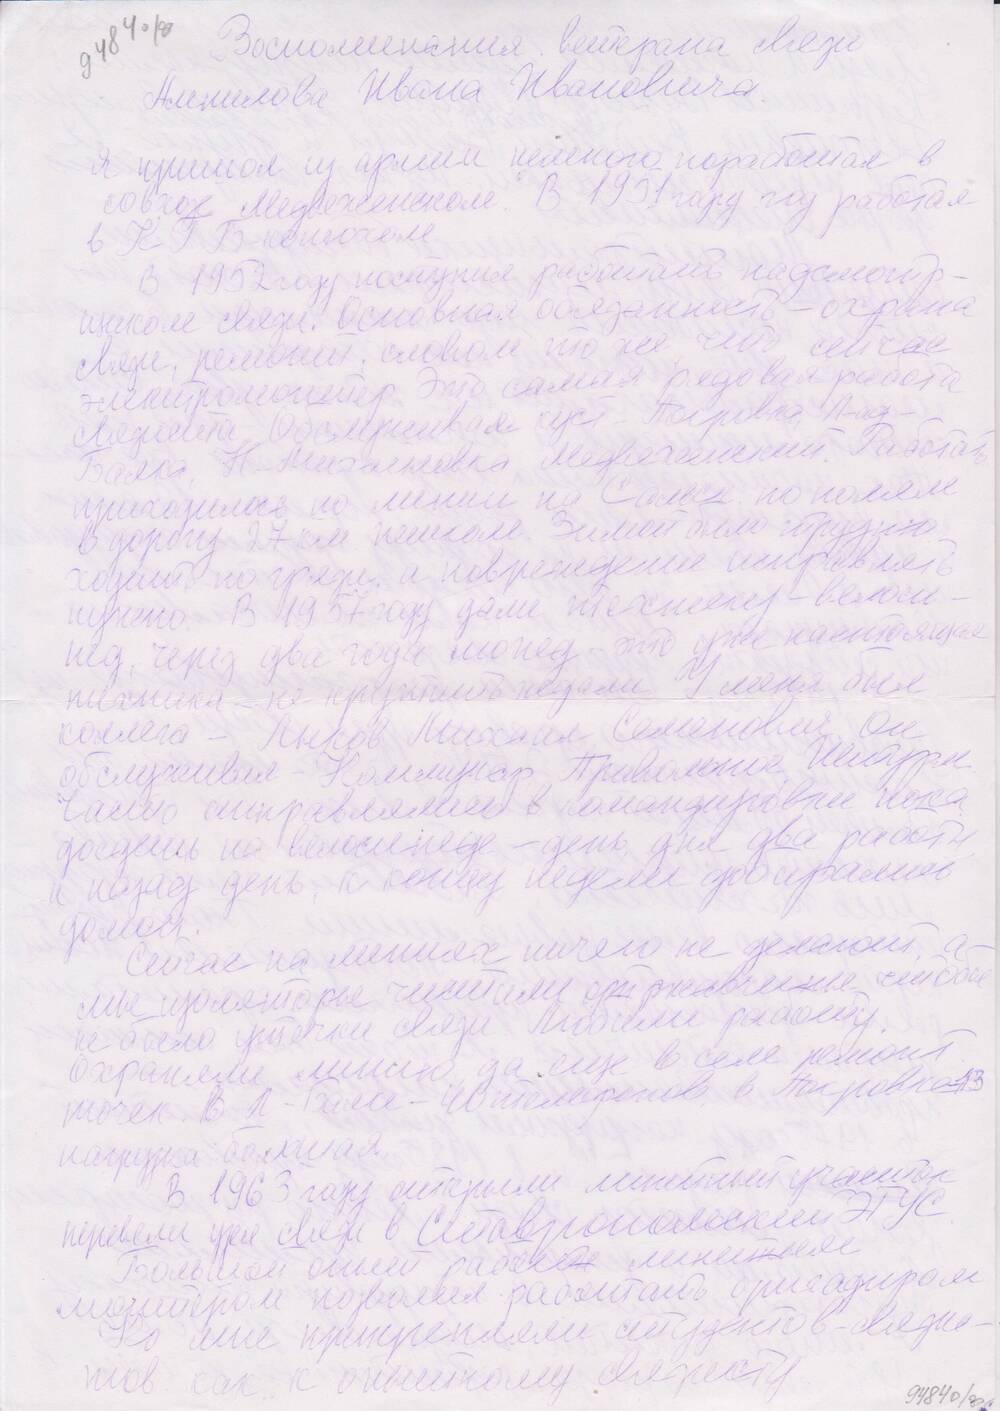 94840/8
Воспоминания ветерана связи
Ивана Ивановича.
Я пришол из армии немного поработал в
совхоз Медвеженском. В 1951 году год работал
в КГБ конюхом
В 1952 году поступил работать надсмотр-
щиком связи. Основная обязанность – охрана
связи, ремонт, словом что же, что сейчас
электромонтер. Это самая рядовая работа
связиста. Обслуживал куст –
Балка, Медвеженский. Работать
приходилось по линии на по полям
в дорогу 27 км пешком. Зимой было трудно
ходить по грязи, а повреждение исправлять
нужно. В 1957 году дали технику – велоси-
пед, через два года мопед – это уже настоящая
техника – не крутить педали. У меня был
коллега – Лыков Михаил Семенович он
обслуживал – Коммунар, Привольное,
Часто отправлялись в командировки пока
доедешь на велосипеде – день, дня два работы,
и назад день, к концу недели добирались
домой.
Сейчас на линиях ничего не делают, а
мы изоляторы чистили чтобы
не было утечки связи. Любили работу.
Охраняли линию да еще в селе ремонт
точек. В Л-Балке – 40 телефонов, в Покровке – 13
нагрузка большая.
В 1963 году открыли линейный участок
перевели узел связи в Ставропольский ЭТУС
Большой опыт работы линейным
монтером позволил работать бригадиром
Ко мне прикрепляли студентов – связис-
тов как к опытному связисту.
94840/8